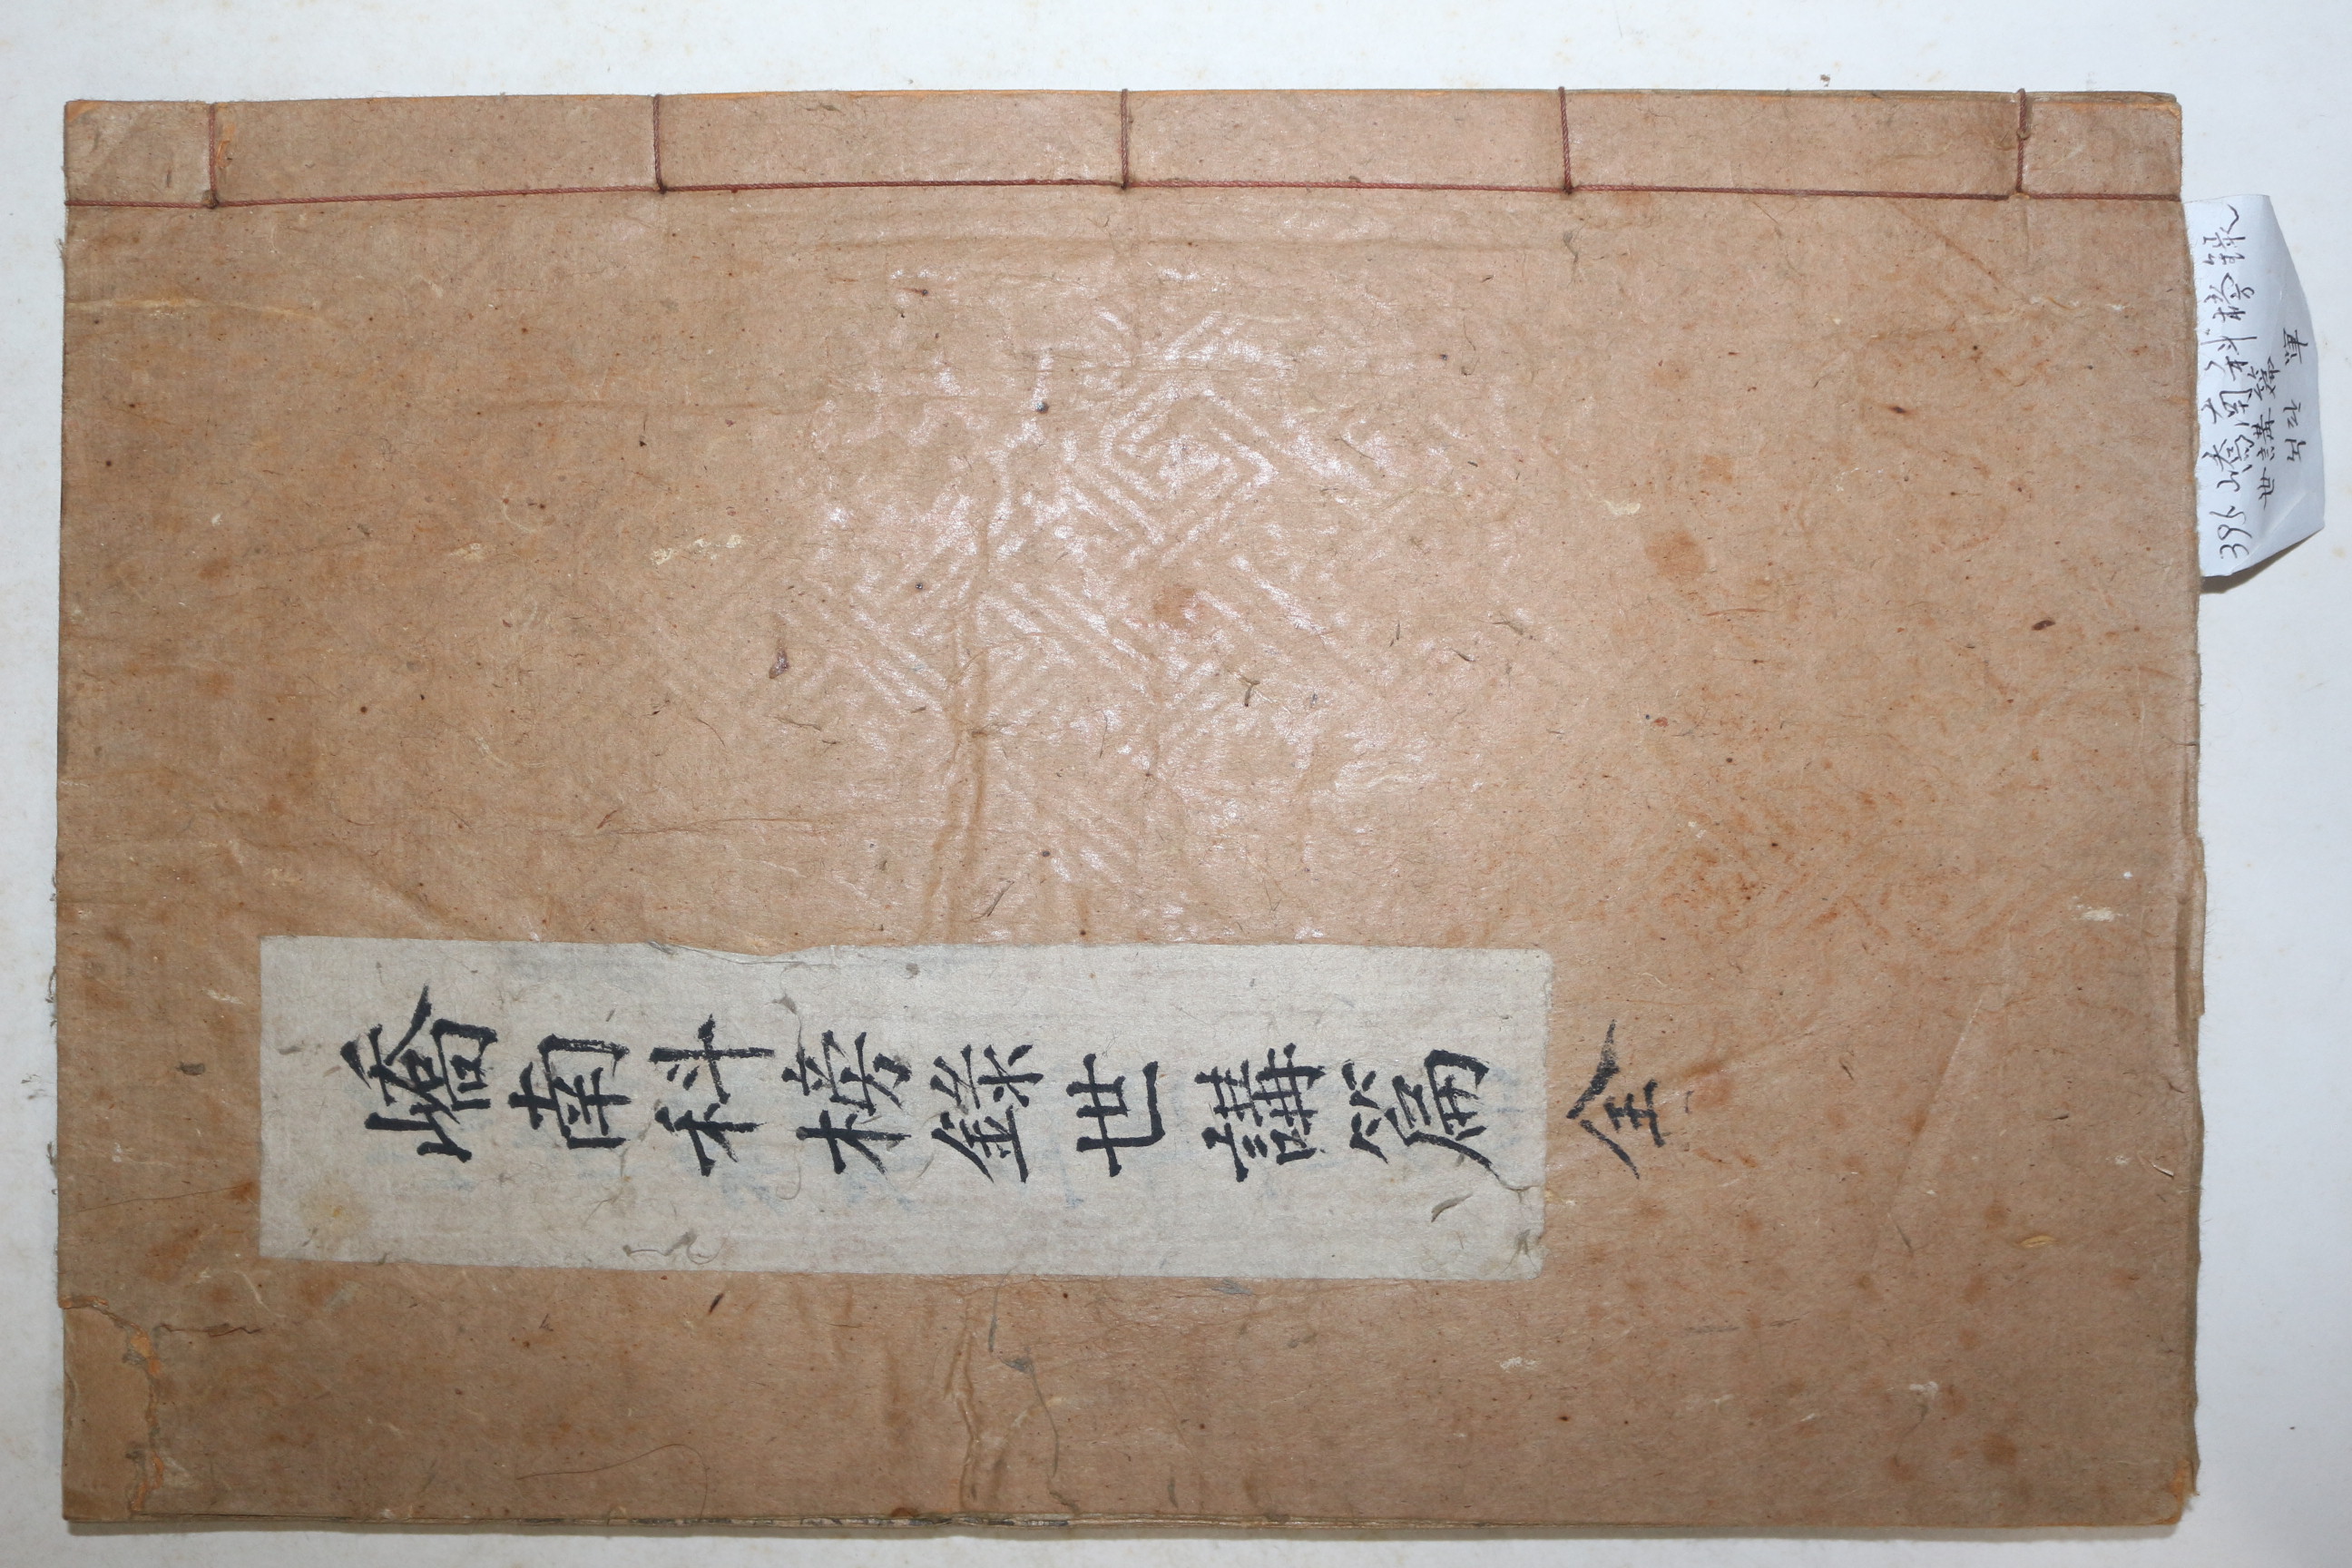 嶠南科榜錄世講篇
全
395 嶠南科榜錄
世講篇
석판 単